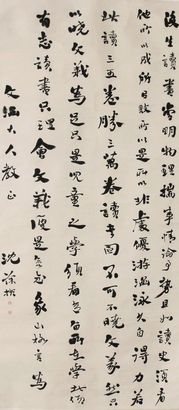 後生讀書當明物理揣事情論事勢且如讀史須看
他所以成所以敗所以是所以非處優游涵泳久自得力若
如此讀三五卷勝三萬卷讀書固不可不曉文義然只
以曉文義為是只是兒童之學須看旨所在學
有志讀書只理會文義便是 象山
大人教正 沈葆楨